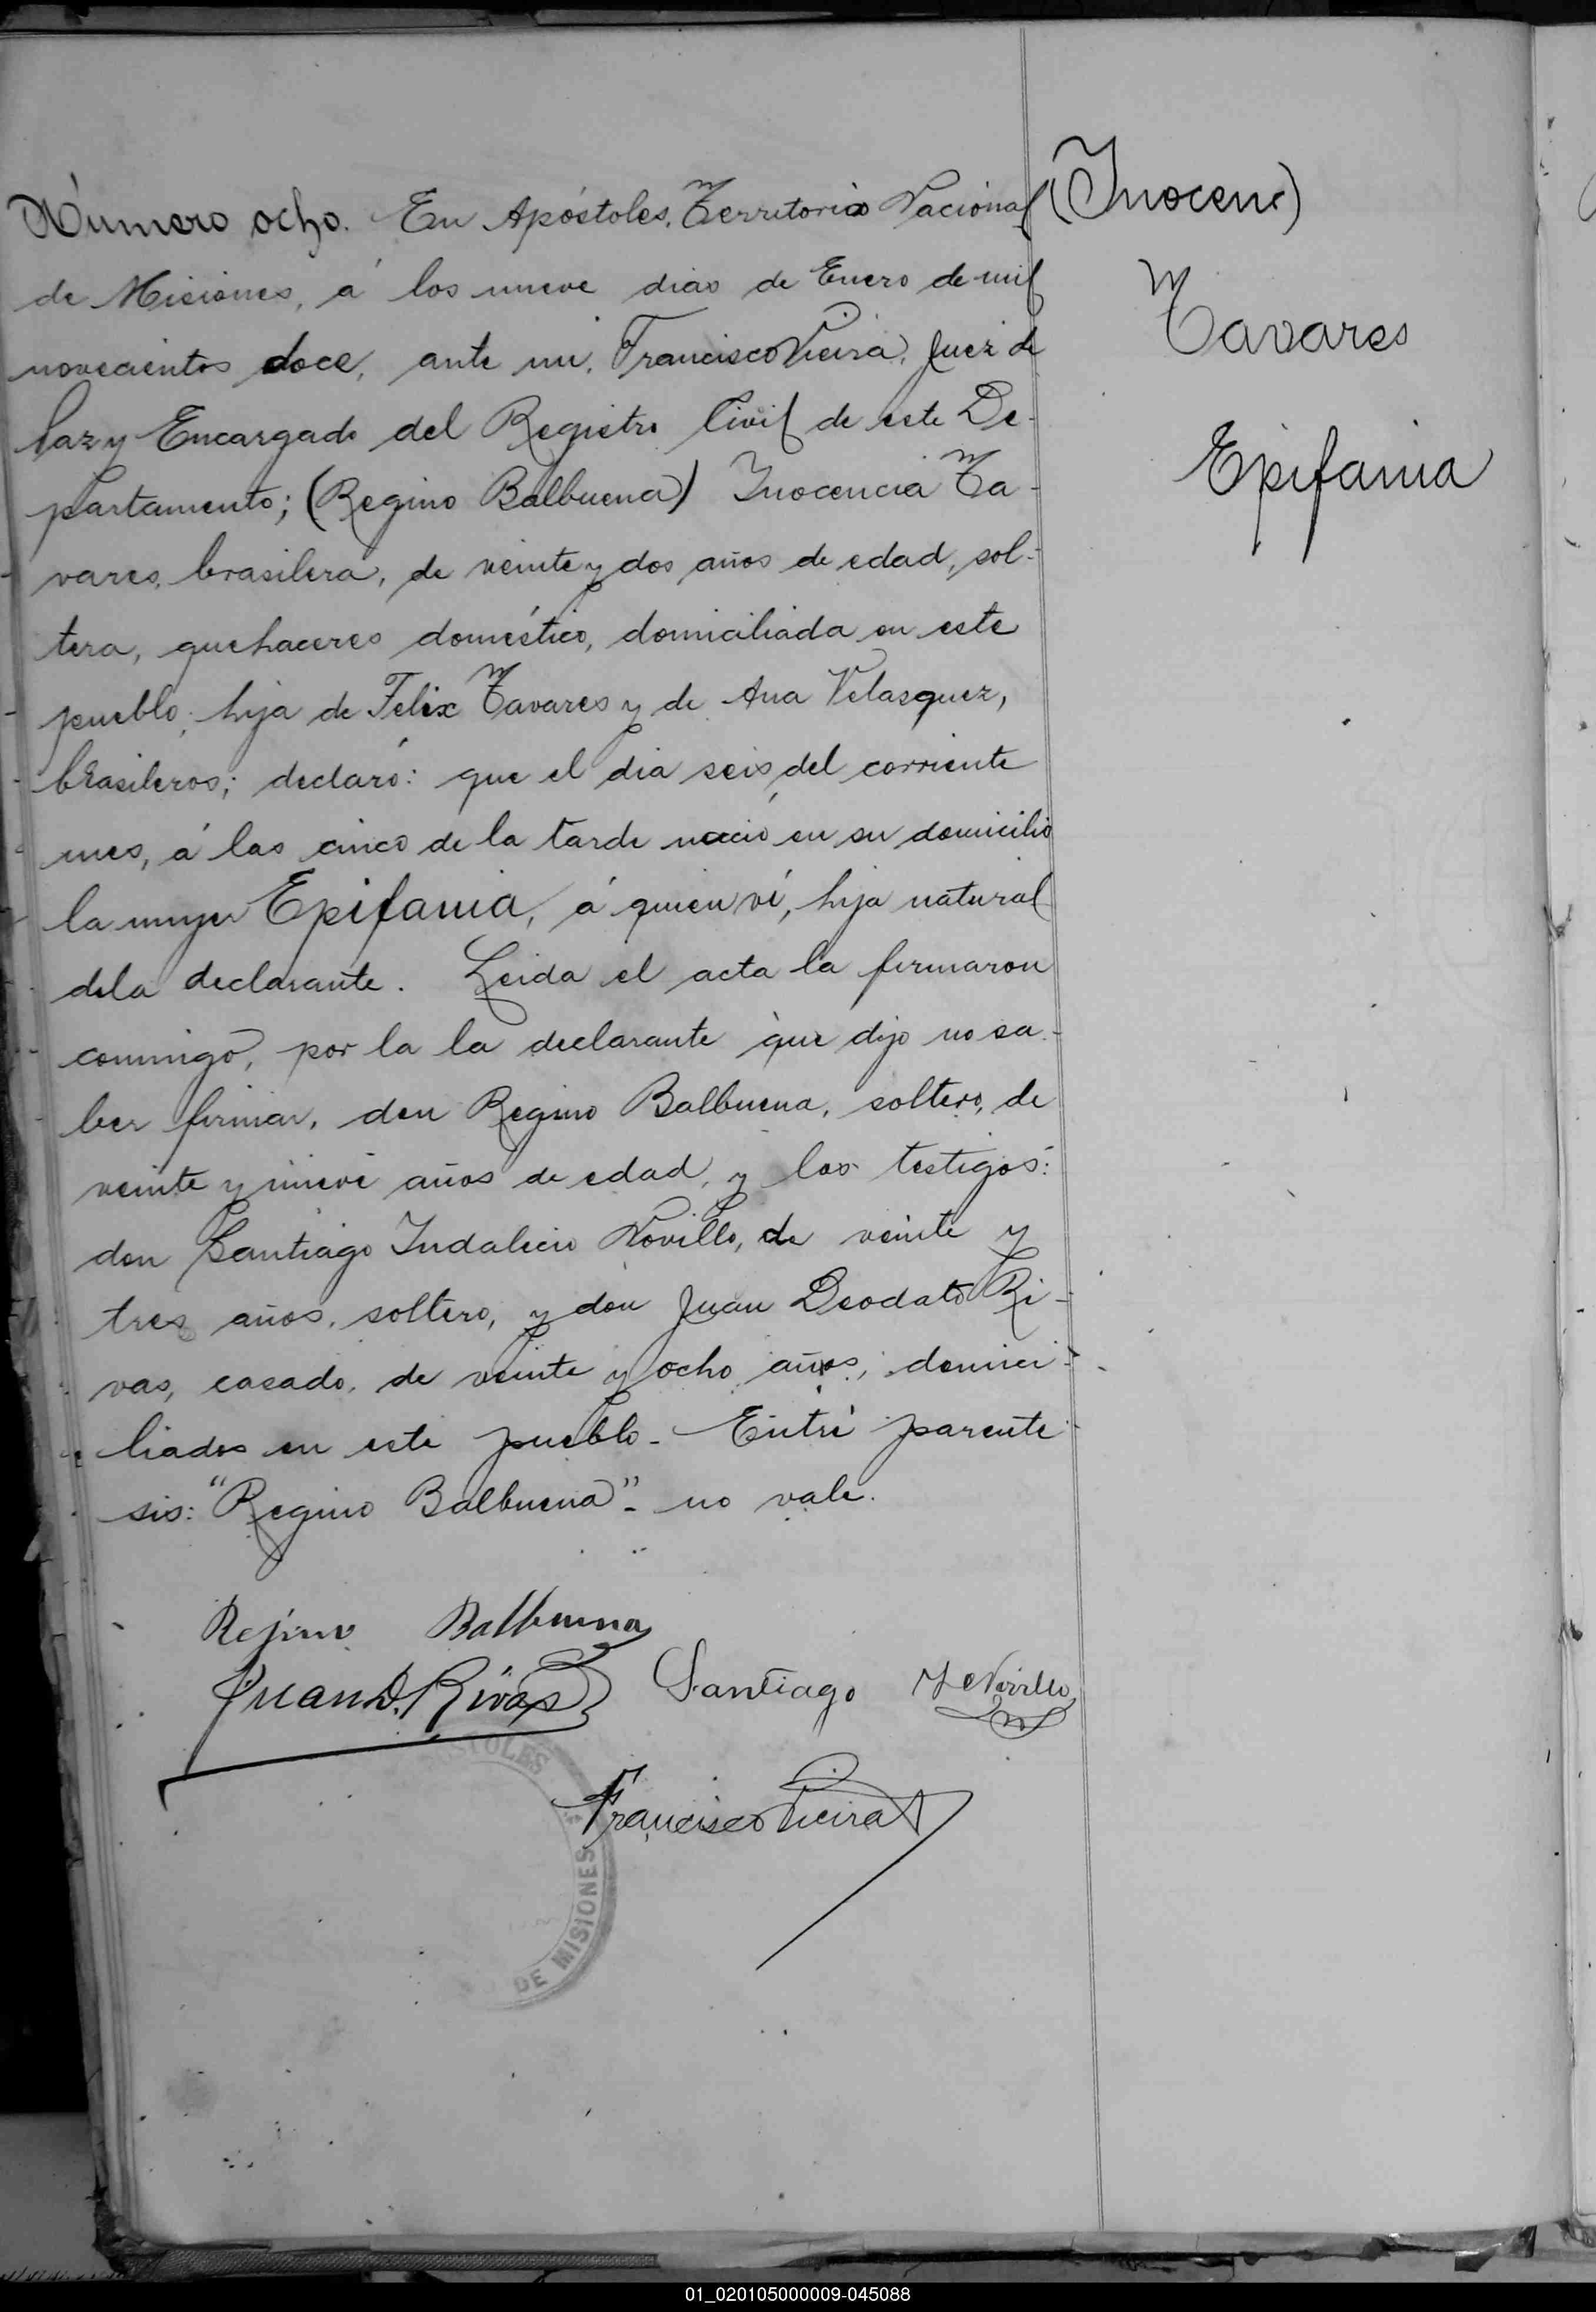 Número ocho. En Apóstoles, Territorio Nacional
de Misiones, á los nueve dias de Enero de mil
novecientos doce, ante mi, Francisco Vieira, Juez de
Paz y Encargado del Registro Civil de este De-
partamento; (Regino Balbuena) Inocencia Ta-
vares, brasilera, de veinte y dos años de edad, sol-
tera, quehaceres doméstico, domiciliada en este
pueblo, hija de Felix Tavares y de Ana Velasquez,
brasileros; declaró: que el dia seis del corriente
mes, á las cinco de la tarde nació en su domicilio
la mujer Epifania, á quien ví, hija natural
dela declarante. Leida el acta la firmaron
commigo, por la la declarante que dijo no sa-
ber firmar, don Regino Balbuena, soltero, de
veinte y nueve años de edad, y los testigos:
don Santiago Indalecio Novillo, de veinte y
tres años, soltero, y don Juan Deodato Ri-
vas, casado, de veinte y ocho años, domici-
liados en este pueblo - Entre parente
sis: "Regino Balbuena" - no vale.
Rejino Balbuena
Juan D. Rivas Santiago I Novillo
Francisco Vieira
(Inocenc)
Tavares
Epifania
STOLES
DE MISIONES
01_020105000009-045088